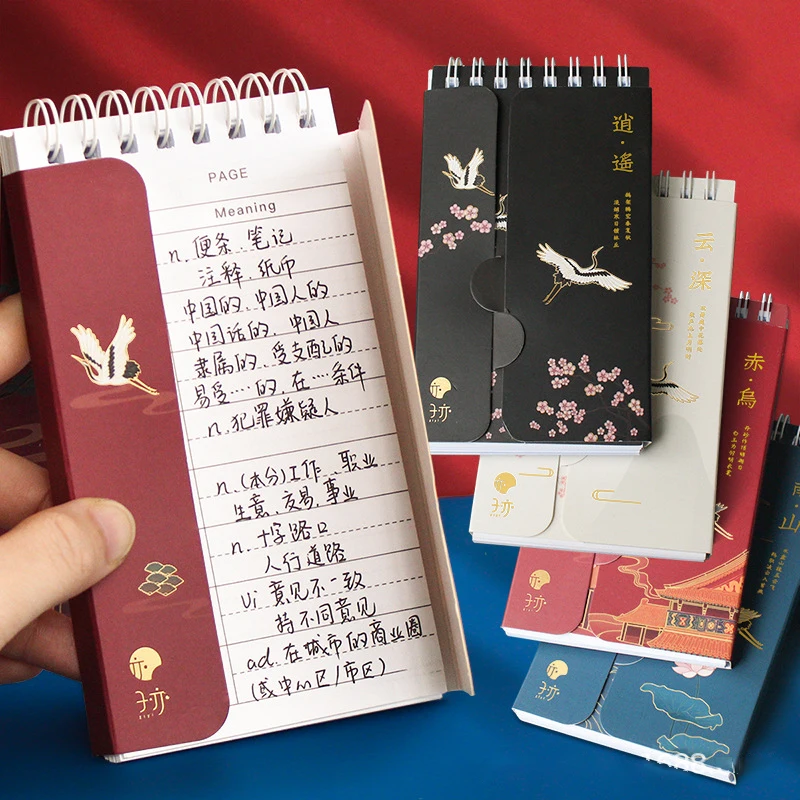 PAGE
Meaning
n. 便条、笔记
注释 纸币
中国的、中国人的
中国话的、中国人
隶属的、受支配的
易受…的 在…条件
n. 犯罪嫌疑人
n. (本分)工作、职业
生意、交易、事业
n. 十字路口
人行道路
vi 意见不一致
持不同意见
ad. 在城市的商业圈
(或中心区/市区)
子亦
逍·遥
子亦
云·深
子亦
赤·乌
子亦
山
子亦